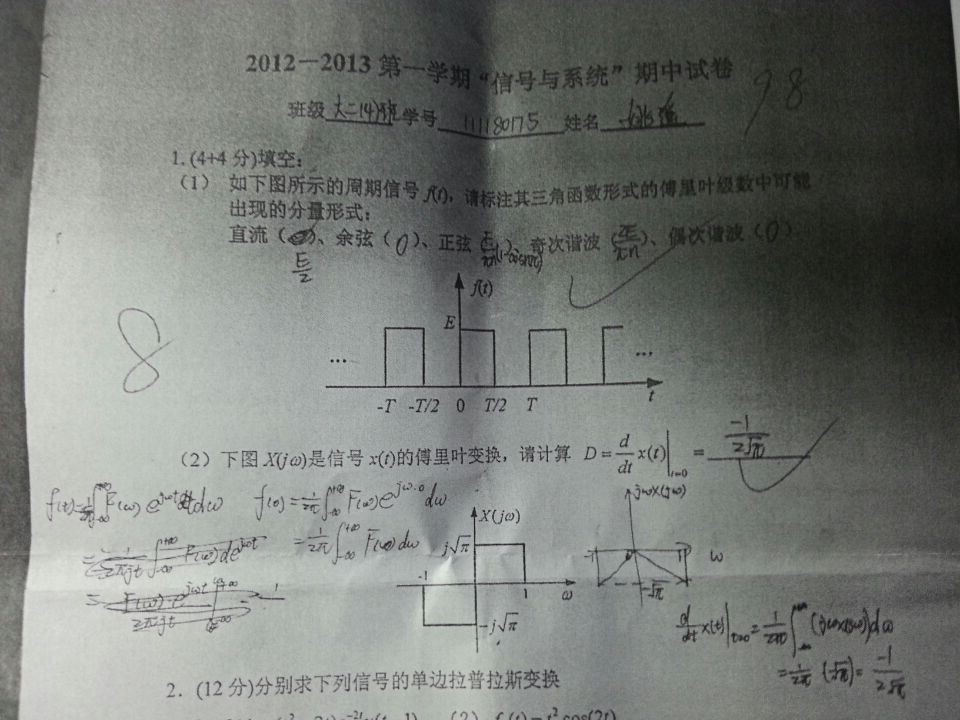 2012－2013 第一学期“信号与系统”期中试卷
98
班级 大二(4)班 学号 111180175 姓名
1.(4+4 分)填空:
(1) 如下图所示的周期信号 f(t), 请标注其三角函数形式的傅里叶级数中可能
出现的分量形式:
直流( )、余弦(0)、正弦( E/πn(1-cosnπ) )、奇次谐波( 2E/πn )、偶次谐波(0)
E/2
8
f(t)
E
... ...
-T -T/2 0 T/2 T t
(2) 下图 X(jω)是信号 x(t)的傅里叶变换, 请计算 D = d/dt x(t)|t=0 = -1/2√π
f(t)=1/2π∫-∞+∞ F(ω)e^jωt dω f(0)=1/2π∫-∞+∞ F(ω)e^jω·0 dω
=1/2π∫-∞+∞ F(ω)dω
X(jω)
j√π
-1 1 ω
-j√π
jωX(jω)
-1 1 ω
-√π
d/dt x(t)|t=0 = 1/2π∫-∞+∞ (jωX(jω))dω
=1/2π (-√π)= -1/2√π
2. (12 分)分别求下列信号的单边拉普拉斯变换
(2) f(t)=t² cos(2t)